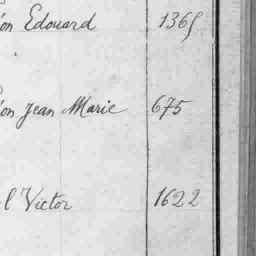 éon Edouard 1365
éon Jean Marie 675
l Victor 1622